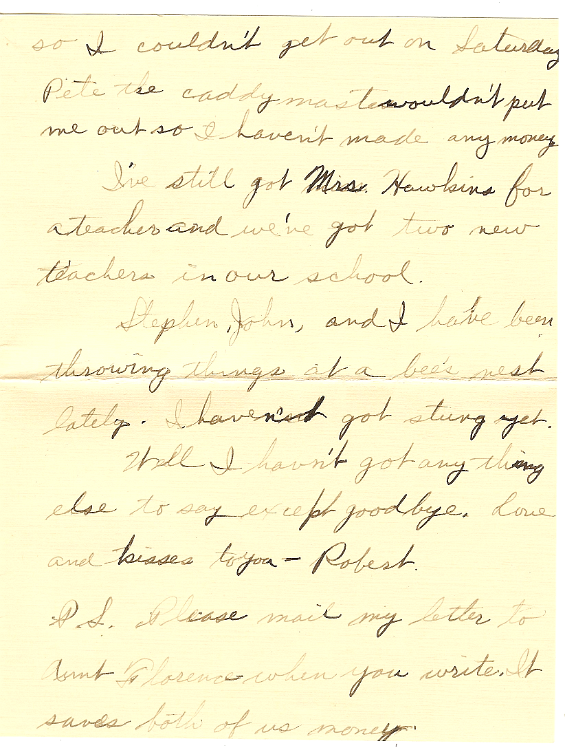 so I couldn't get out on Saturday
Pete the caddymaster wouldn't put
me out so I haven't made any money
I've still got Mrs. Hawkins for
a teacher and we've got two new
teachers in our school.
Stephen, John, and I have been
throwing things at a bee's nest
lately. I haven't got stung yet.
Well I havn't got any thing
else to say except goodbye. Love
and kisses to you - Robert.
P.S. Please mail my letter to
Aunt Florence when you write. It
saves both of us money.